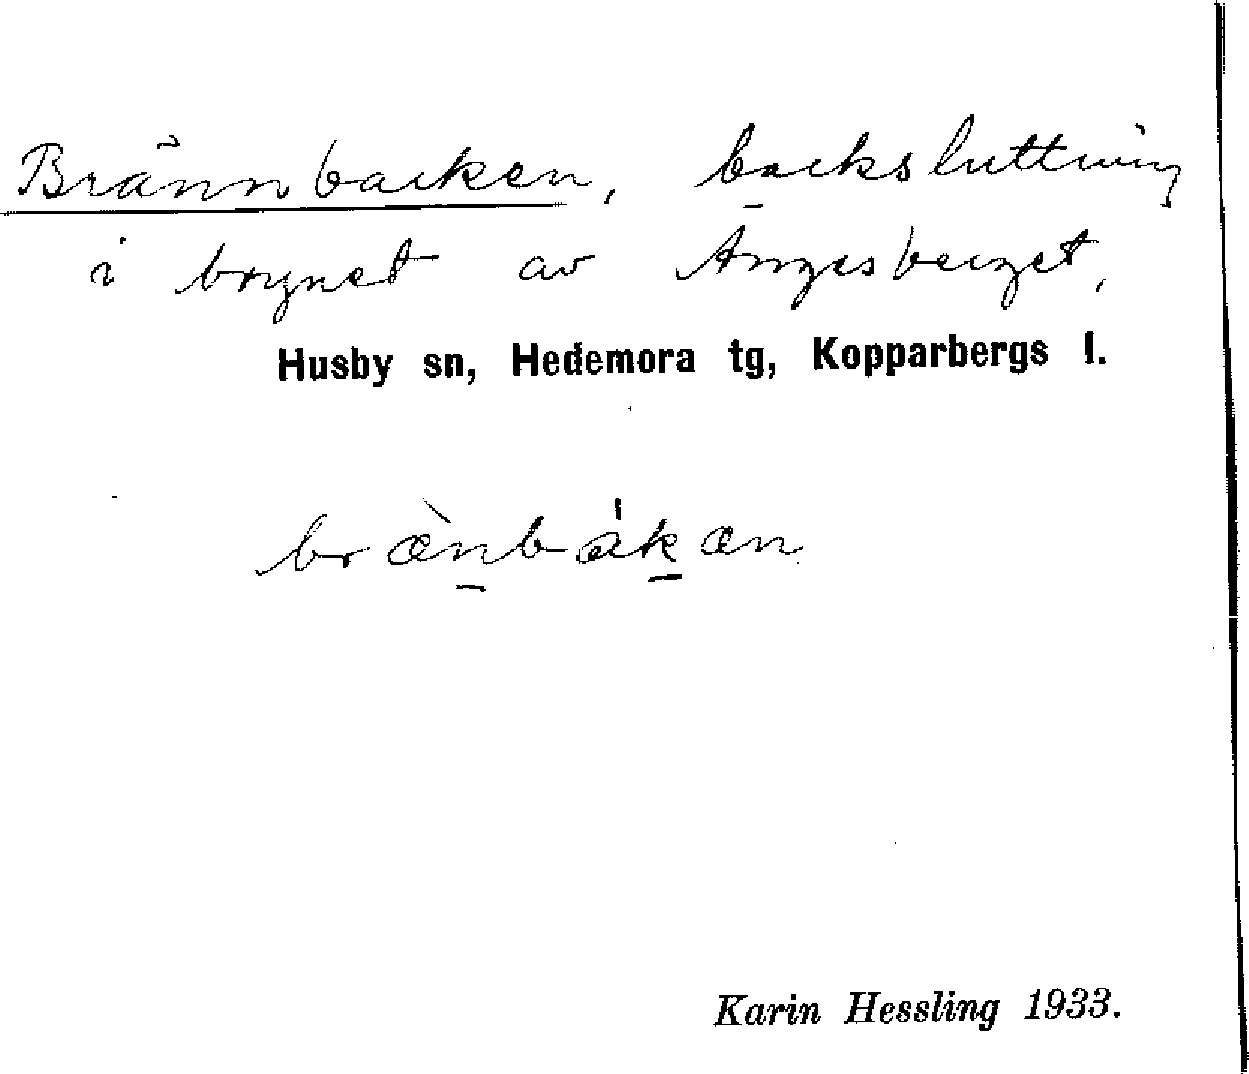 Brännbacken, backsluttning
i brynet av Ängesberget,
Husby sn, Hedemora tg, Kopparbergs l.
bræ̀n̠bák̠æn
Karin Hessling 1933.